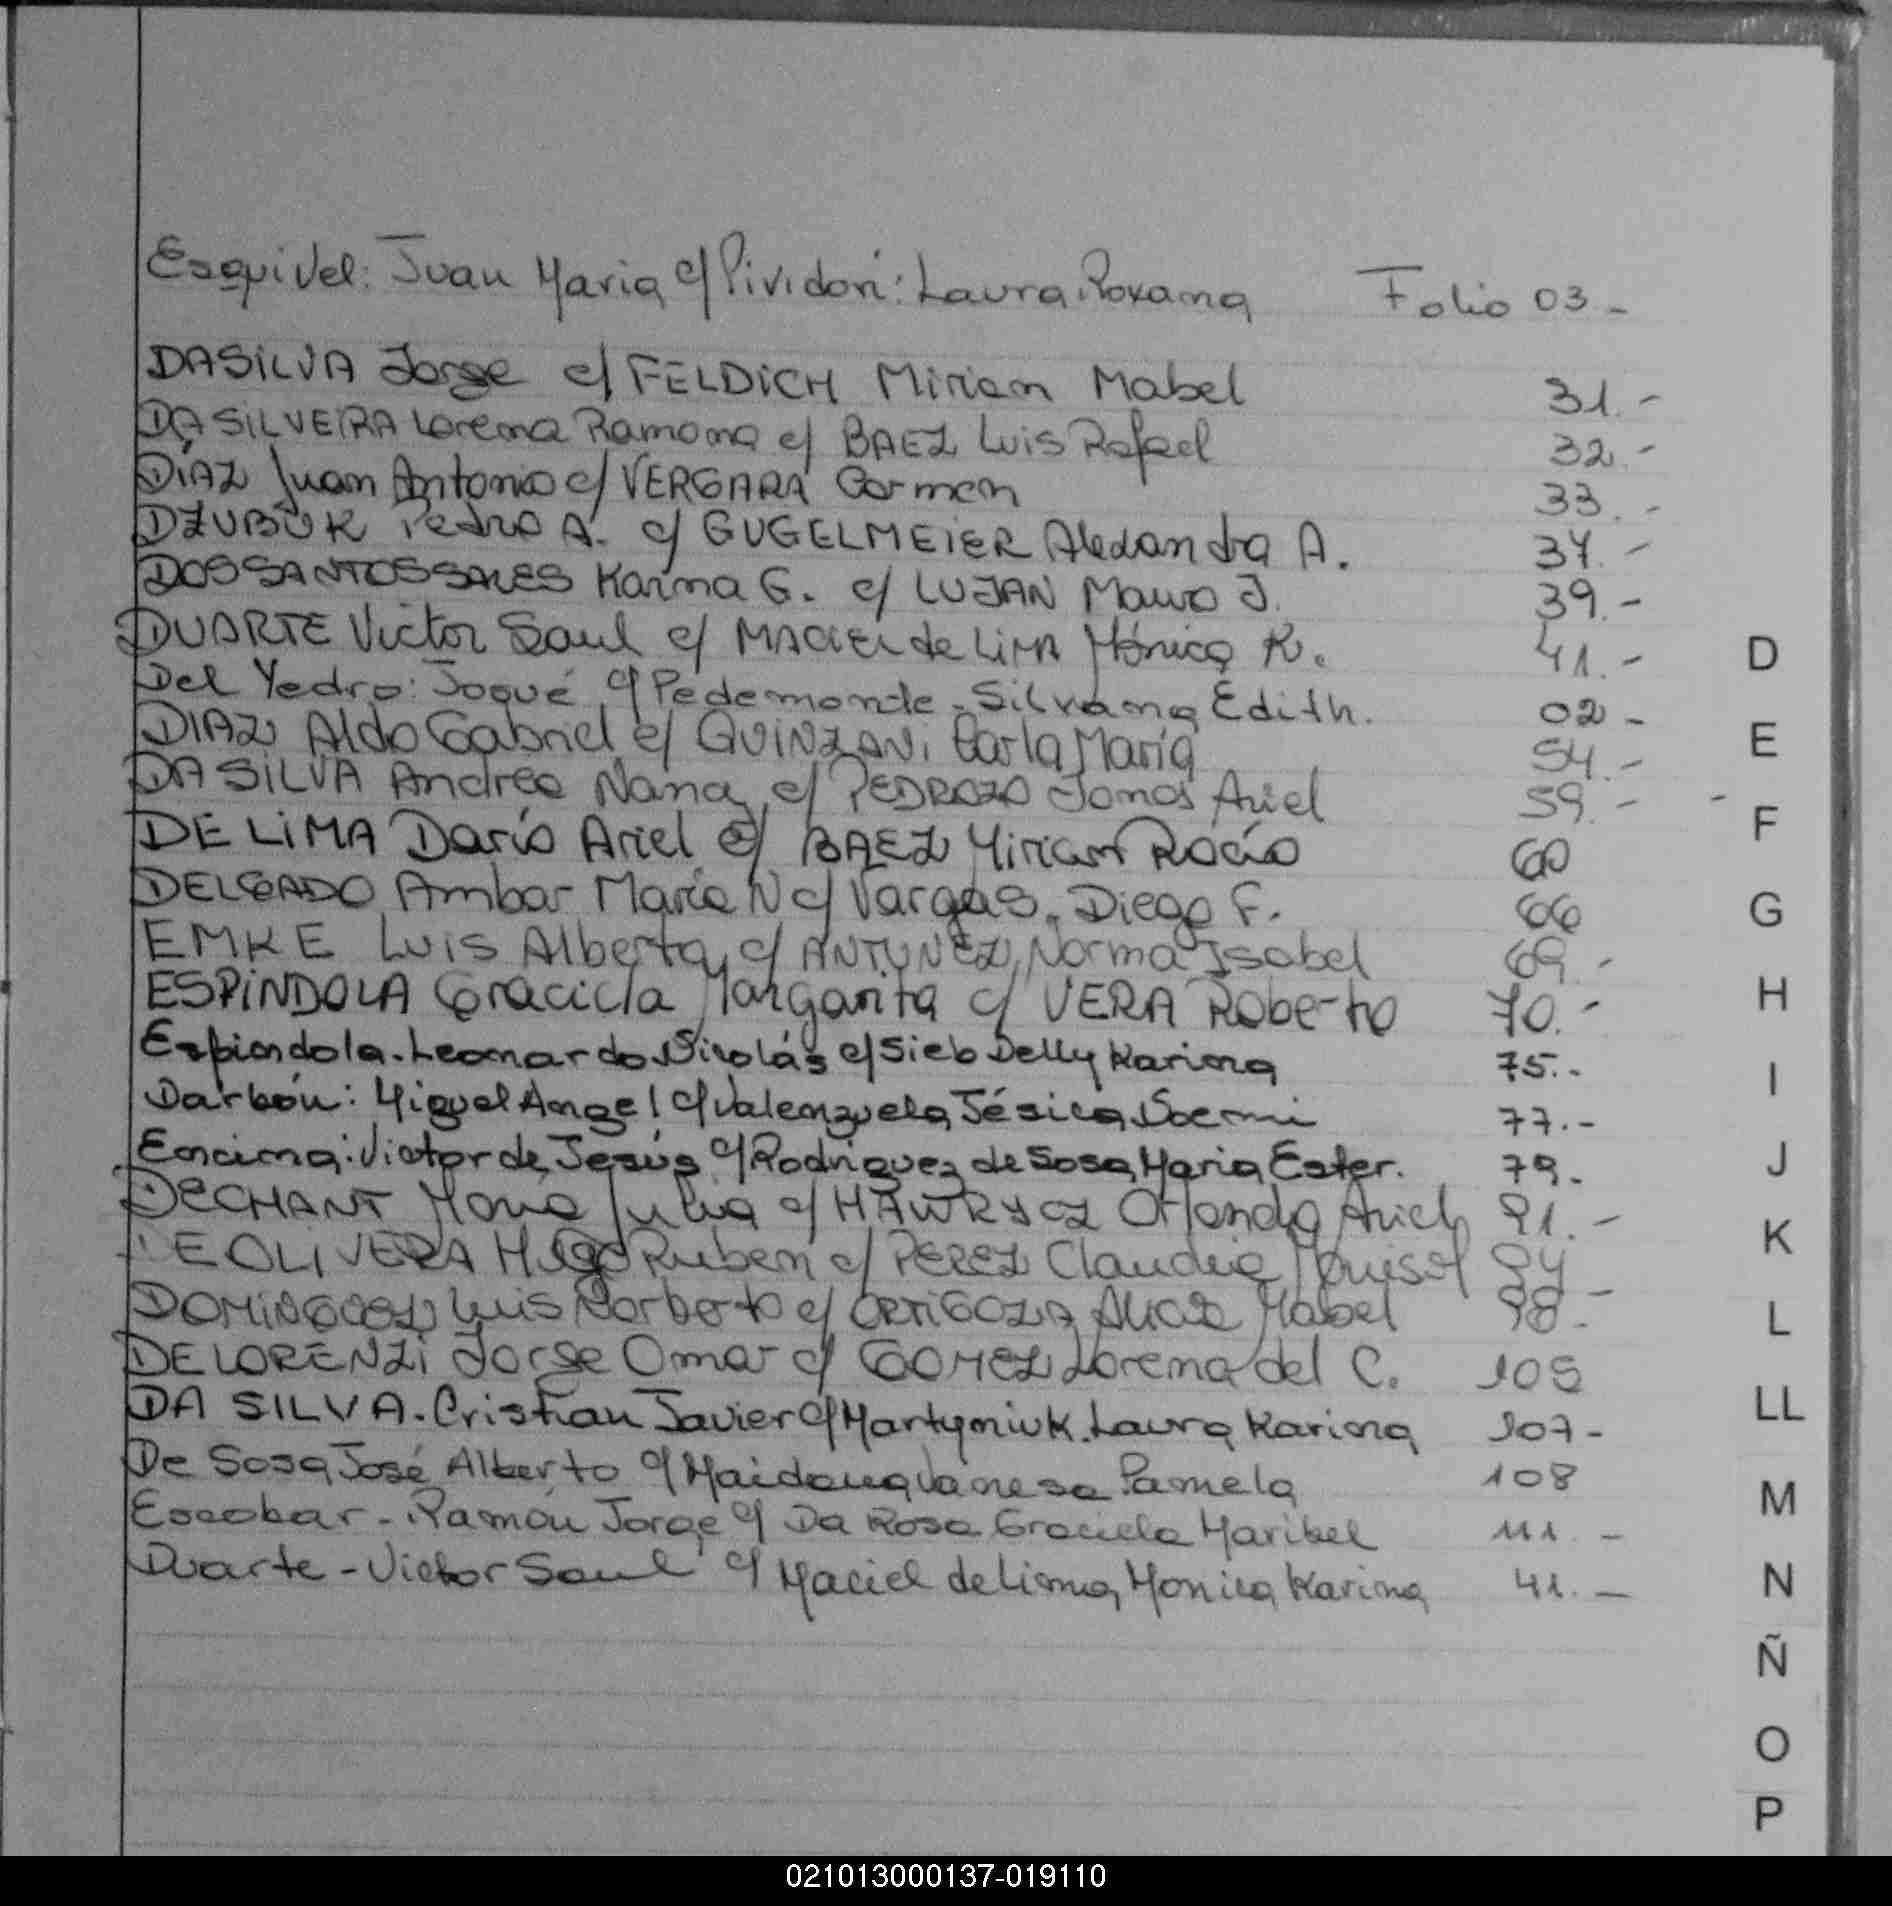 Esquivel: Juan Maria c/ Pividori: Laura Roxana Folio 03-
DASILVA Jorge c/ FELDICH Miriam Mabel 31.-
DA SILVEIRA Lorena Ramona c/ BAEZ Luis Rafael 32.-
DÍAZ Juan Antonio c/ VERGARA Carmen 33.-
DZUBUK Pedro A. c/ GUGELMEIER Alexandra A. 37.-
DOSSANTOSSALES Karina G. c/ LUJAN Mauro J. 39.-
DUARTE Victor Saul c/ MACIEL de LIMA Mónica K. 41.-
Del Yedro: Josué c/ Pedemonte - Silvana Edith. 02-
DIAZ Aldo Gabriel c/ QUINZANI Carla María 54.-
DA SILVA Andrea Nana c/ PEDROZO Jonas Ariel 59.-
DE LIMA Darío Ariel c/ BAEZ Miriam Rocío 60
DELGADO Ambar María N c/ Vargas, Diego F. 66
EMKE Luis Alberto c/ ANTUNEZ, Norma Isabel 69.-
ESPINDOLA Graciela Margarita c/ VERA Roberto 70.-
Espindola. Leonardo Nicolás c/ Sieb Delly Karina 75.-
Darbón: Miguel Angel c/ Valenzuela Jésica Noemi 77.-
Encina: Victor de Jesús c/ Rodriguez de Sosa Maria Ester. 79.
DECHANT María Julia c/ HAWRYCZ Orlando Ariel 91.-
EOLIVERA Hugo Ruben c/ PEREZ Claudia Marisol 94
DOMINGUEZ Luis Norberto c/ ORTIGOZA Alicia Mabel 98.-
DELORENZI Jorge Omar c/ GOMEZ Lorena del C. 105
DA SILVA. Cristian Javier c/ Martyniuk. Laura Karina 107-
De Sosa José Alberto c/ Maidana Vanesa Pamela 108
Escobar - Ramón Jorge c/ Da Rosa Graciela Maribel 111.-
Duarte - Victor Saul c/ Maciel de Lima, Monica Karina 41.-
D
E
F
G
H
I
J
K
L
LL
M
N
Ñ
O
P
021013000137-019110